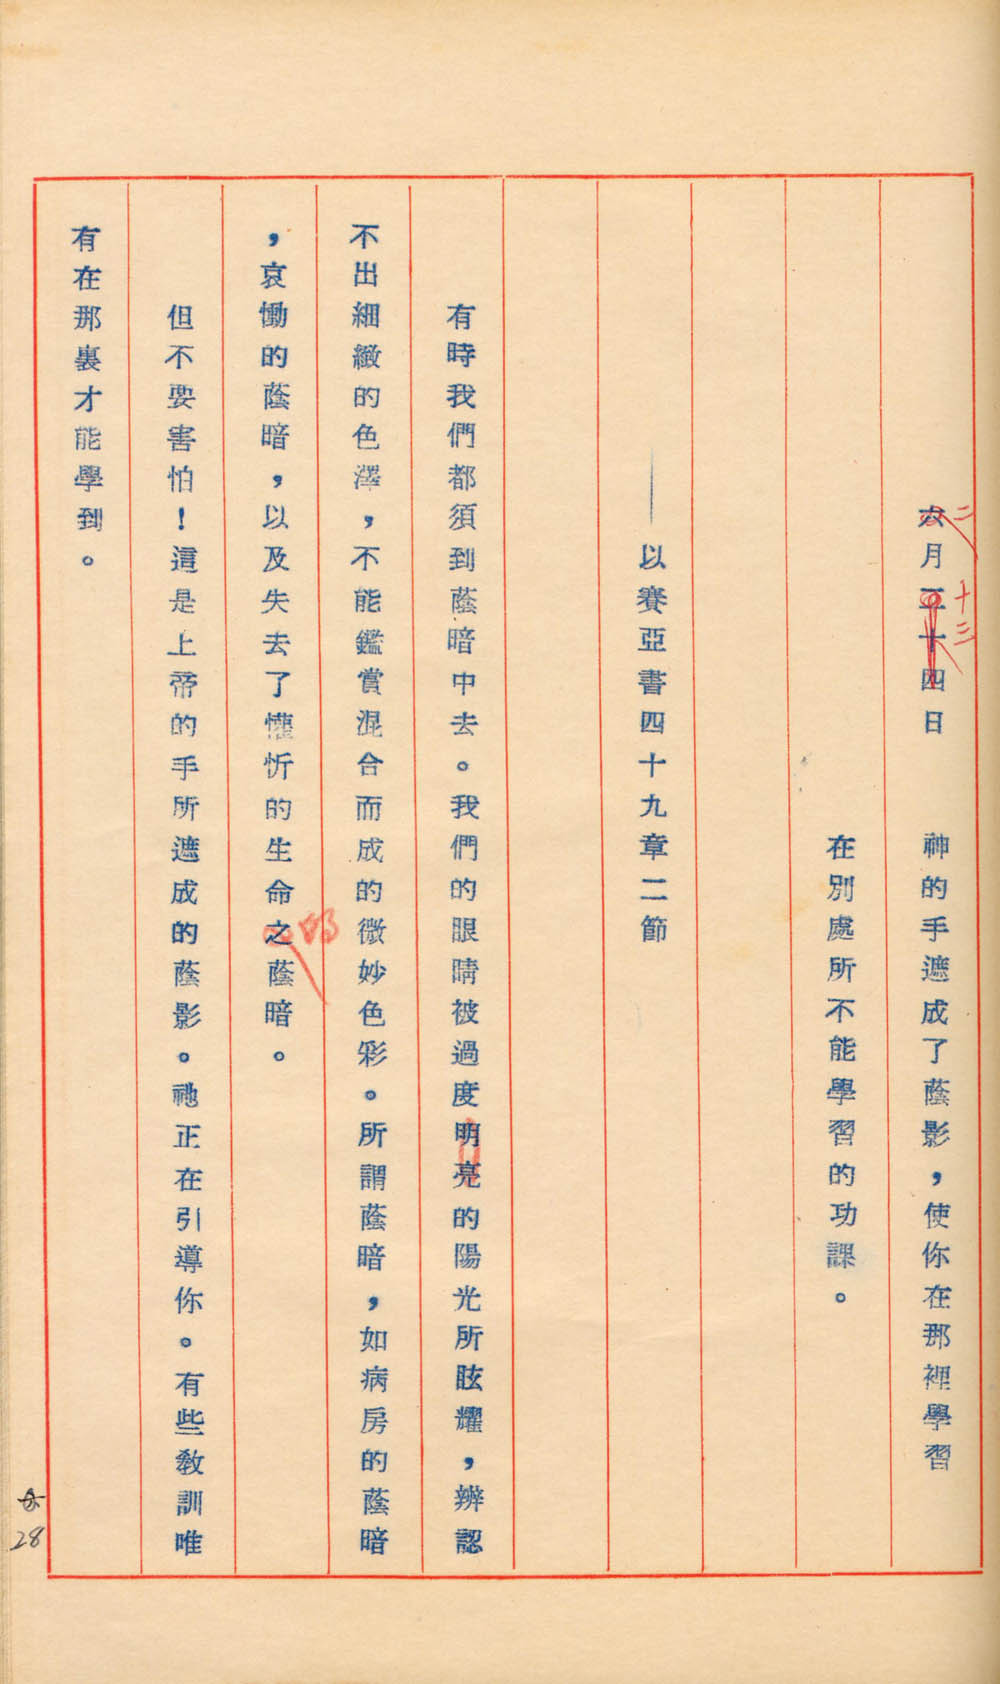 六月二十四日　神的手遮成了蔭影，使你在那裡學習
二
十三
在別處所不能學習的功課。
——以賽亞書四十九章二節
有時我們都須到蔭暗中去。我們的眼睛被過度明亮的陽光所眩耀，辨認
不出細緻的色澤，不能鑑賞混合而成的微妙色彩。所謂蔭暗，如病房的蔭暗
，哀慟的蔭暗，以及失去了懽忻的生命之蔭暗。
的
但不要害怕！這是上帝的手所遮成的蔭影。祂正在引導你。有些教訓唯
有在那裏才能學到。
28